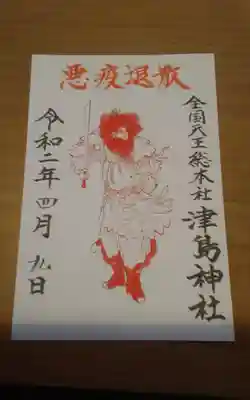 悪疫退散
全国天王総本社
津島神社
令和二年四月九日